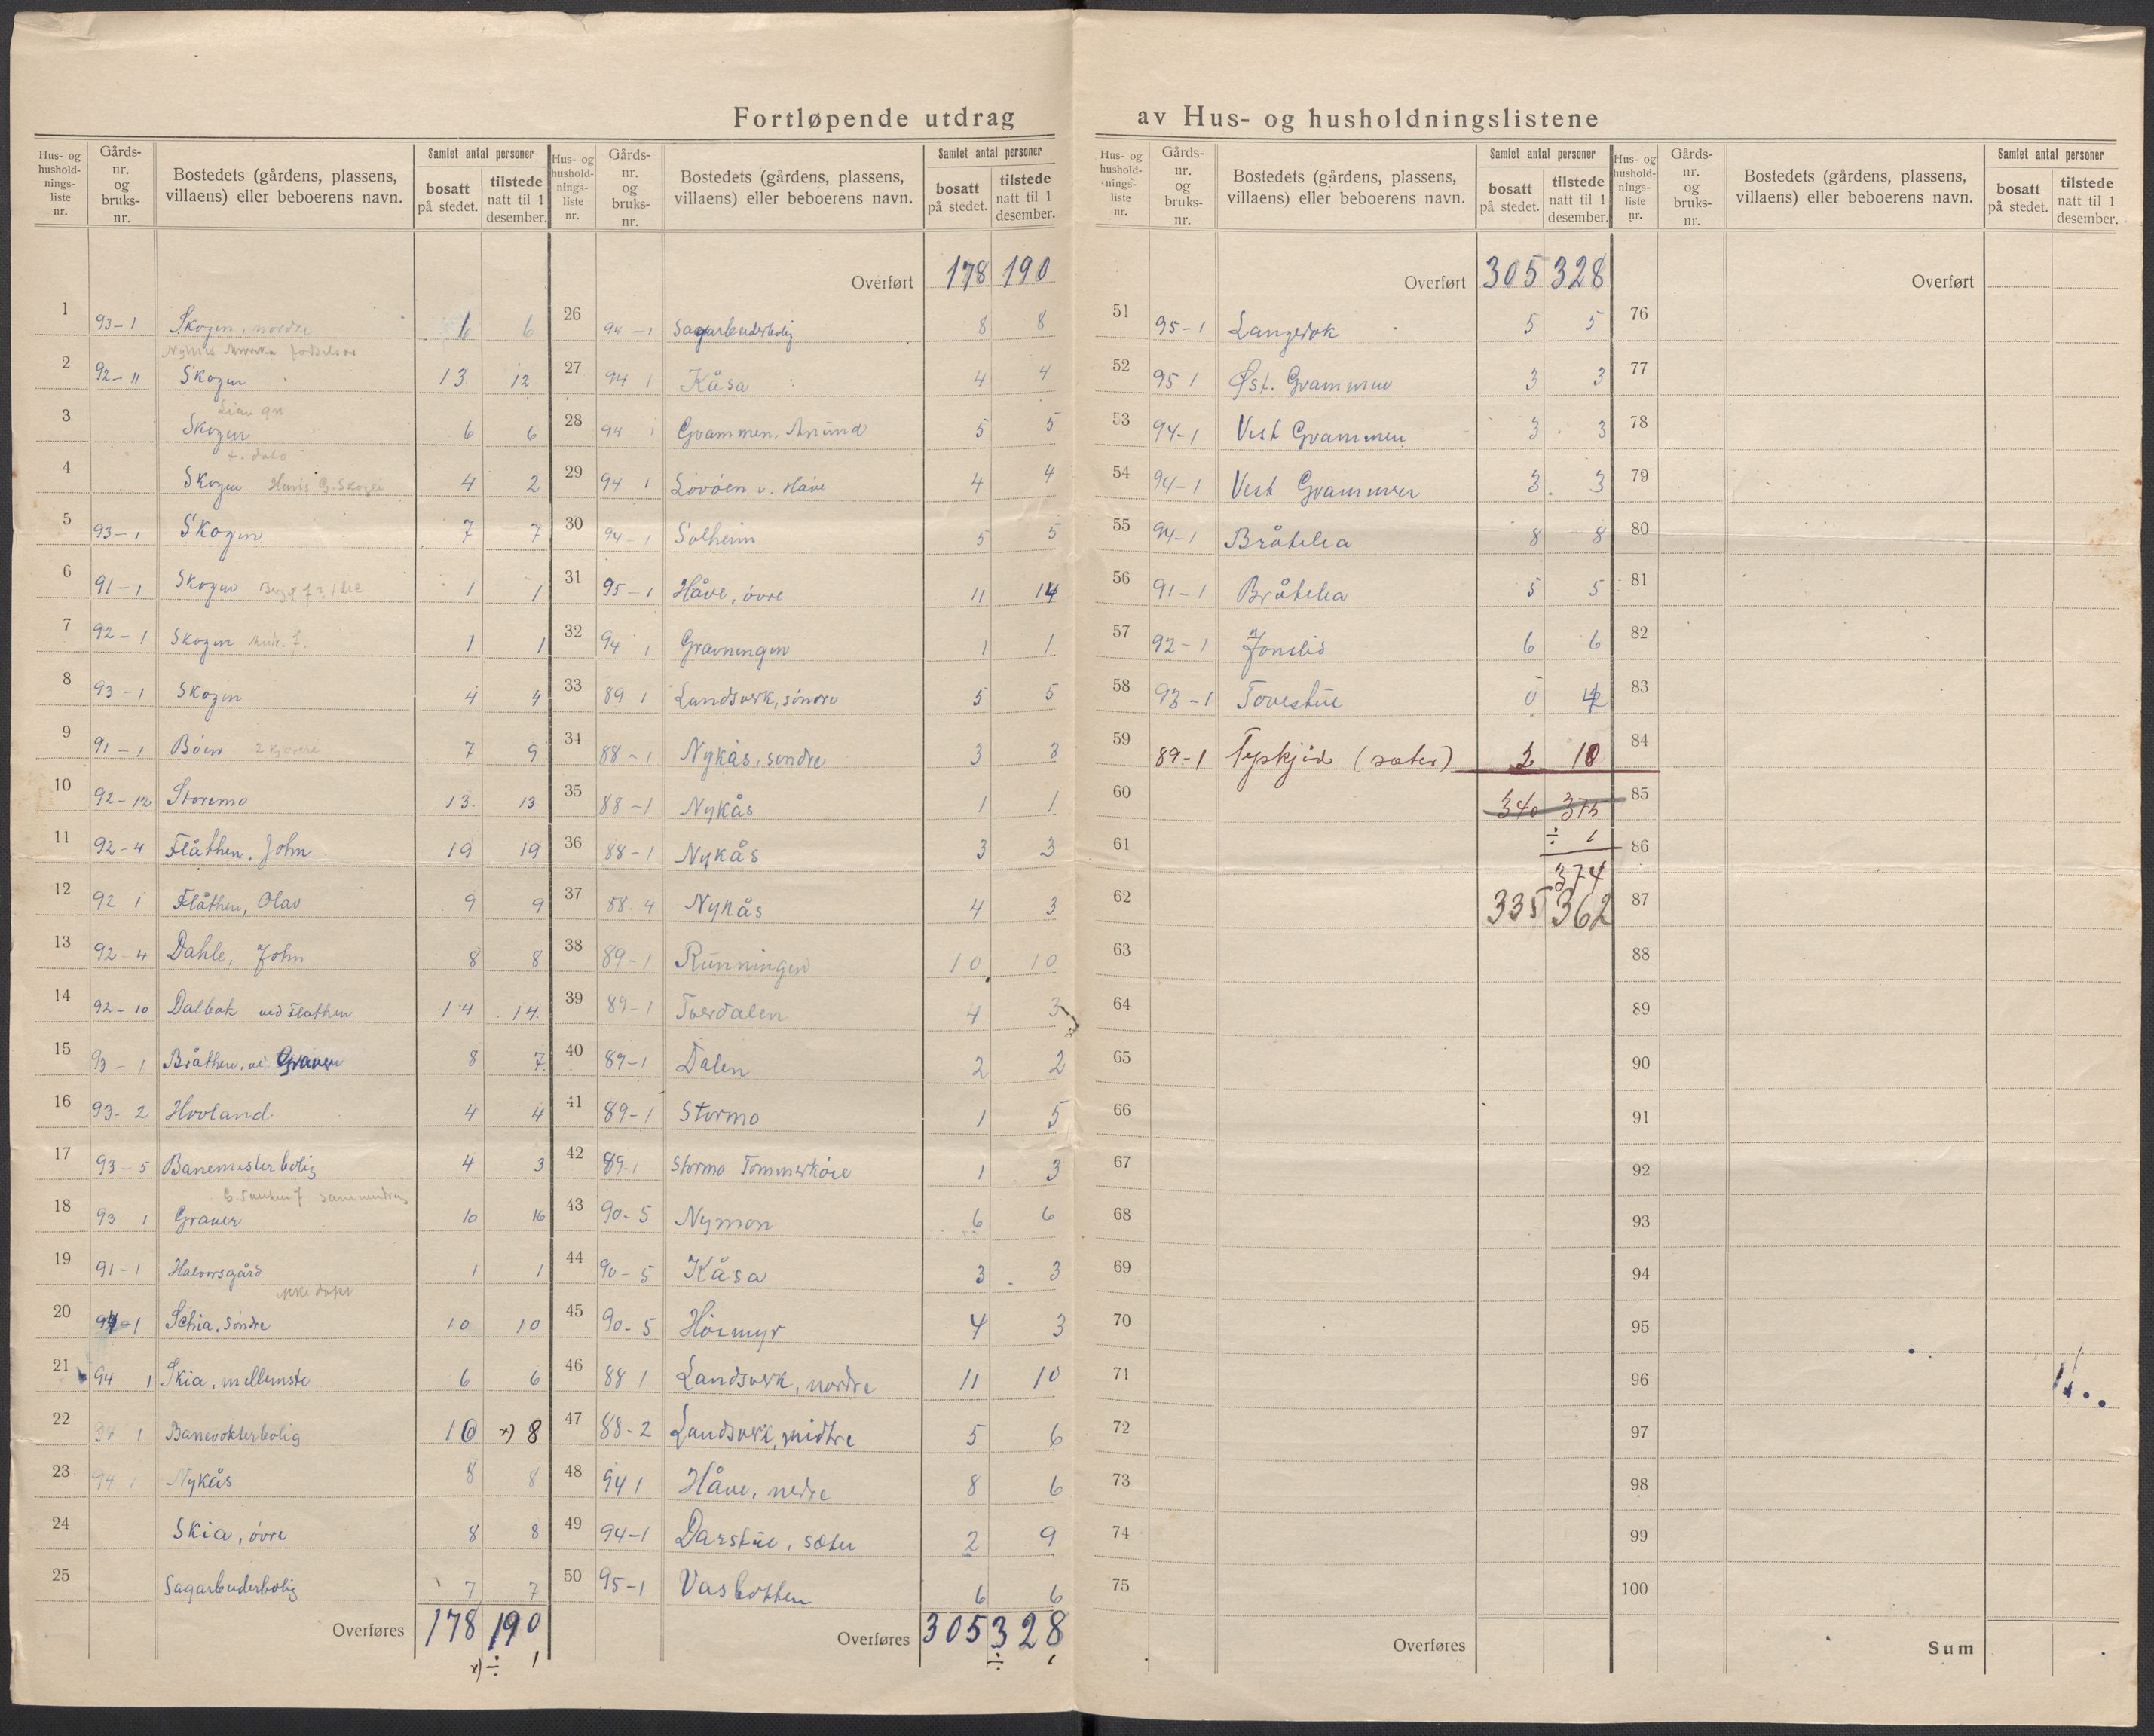 Fortløpende utdrag av Hus- og husholdningslistene
Hus- og husholdnings-liste nr. Gårds-nr. og bruks-nr. Bostedets (gårdens, plassens, villaens) eller beboerens navn. Samlet antal personer bosatt på stedet. tilstede natt til 1 desember.
1 93-1 Skogen, nordre 6 6
2 92-11 Skogen 13 12
3 Skogen 6 6
4 Skogen 4 2
5 93-1 Skogen 7 7
6 91-1 Skogen 1 1
7 92-1 Skogen 1 1
8 93-1 Skogen 4 4
9 91-1 Bøen 7 9
10 92-12 Storemo 13 13
11 92-4 Flåthen, John 19 19
12 92 1 Flåthen, Olav 9 9
13 92-4 Dahle, John 8 8
14 92-10 Dalbak ved Flathen 14 14
15 93-1 Bråthen, v. Graver 8 7
16 93-2 Hovland 4 4
17 93-5 Banemesterbolig 4 3
18 93 1 Graver 10 16
19 91-1 Halvorsgård 1 1
ikke døpt
20 94-1 Schia, søndre 10 10
21 94 1 Skia, mellemste 6 6
22 94 1 Banevokterbolig 10 x) 8
23 94 1 Nykås 8 8
24 Skia, øvre 8 8
25 Sagarbuderbolig 7 7
Overføres 178 190
x) ÷ 1
Hus- og husholdnings-liste nr. Gårds-nr. og bruks-nr. Bostedets (gårdens, plassens, villaens) eller beboerens navn. Samlet antal personer bosatt på stedet. tilstede natt til 1 desember.
Overført 178 190
26 94-1 Sagarbuderbolig 8 8
27 94 1 Kåsa 4 4
28 94 1 Gvammen, Amund 5 5
29 94 1 Lovøen v. Håve 4 4
30 94-1 Solheim 5 5
31 95-1 Håve, øvre 11 14
32 94 1 Gravningen 1 1
33 89 1 Landsverk, søndre 5 5
34 88-1 Nykås, søndre 3 3
35 88-1 Nykås 1 1
36 88-1 Nykås 3 3
37 88-4 Nykås 4 3
38 89-1 Runningen 10 10
39 89-1 Tverdalen 4 3
40 89-1 Dalen 2 2
41 89-1 Stormo 1 5
42 89-1 Stormo Tømmerkoie 1 3
43 90-5 Nymon 6 6
44 90-5 Kåsa 3 3
45 90-5 Høimyr 4 3
46 88 1 Landsverk, nordre 11 10
47 88-2 Landsverk, midtre 5 6
48 94 1 Håve, nedre 8 6
49 94-1 Darstue, sæter 2 9
50 95-1 Vasbotten 6 6
Overføres 305 328
÷ 1
Hus- og husholdnings-liste nr. Gårds-nr. og bruks-nr. Bostedets (gårdens, plassens, villaens) eller beboerens navn. Samlet antal personer bosatt på stedet. tilstede natt til 1 desember.
Overført 305 328
51 95-1 Langedok 5 5
52 95 1 Øst. Gvammen 3 3
53 94-1 Vest Gvammen 3 3
54 94-1 Vest Gvammen 3 3
55 94-1 Bråtelia 8 8
56 91-1 Bråtelia 5 5
57 92-1 Jonslid 6 6
58 93-1 Tovestue 0 4
59 89-1 (sæter) 2 10
60 340 375
61 ÷ 1
374
62 335 362
63
64
65
66
67
68
69
70
71
72
73
74
75
Overføres
Hus- og husholdnings-liste nr. Gårds-nr. og bruks-nr. Bostedets (gårdens, plassens, villaens) eller beboerens navn. Samlet antal personer bosatt på stedet. tilstede natt til 1 desember.
Overført
76
77
78
79
80
81
82
83
84
85
86
87
88
89
90
91
92
93
94
95
96
97
98
99
100
Sum